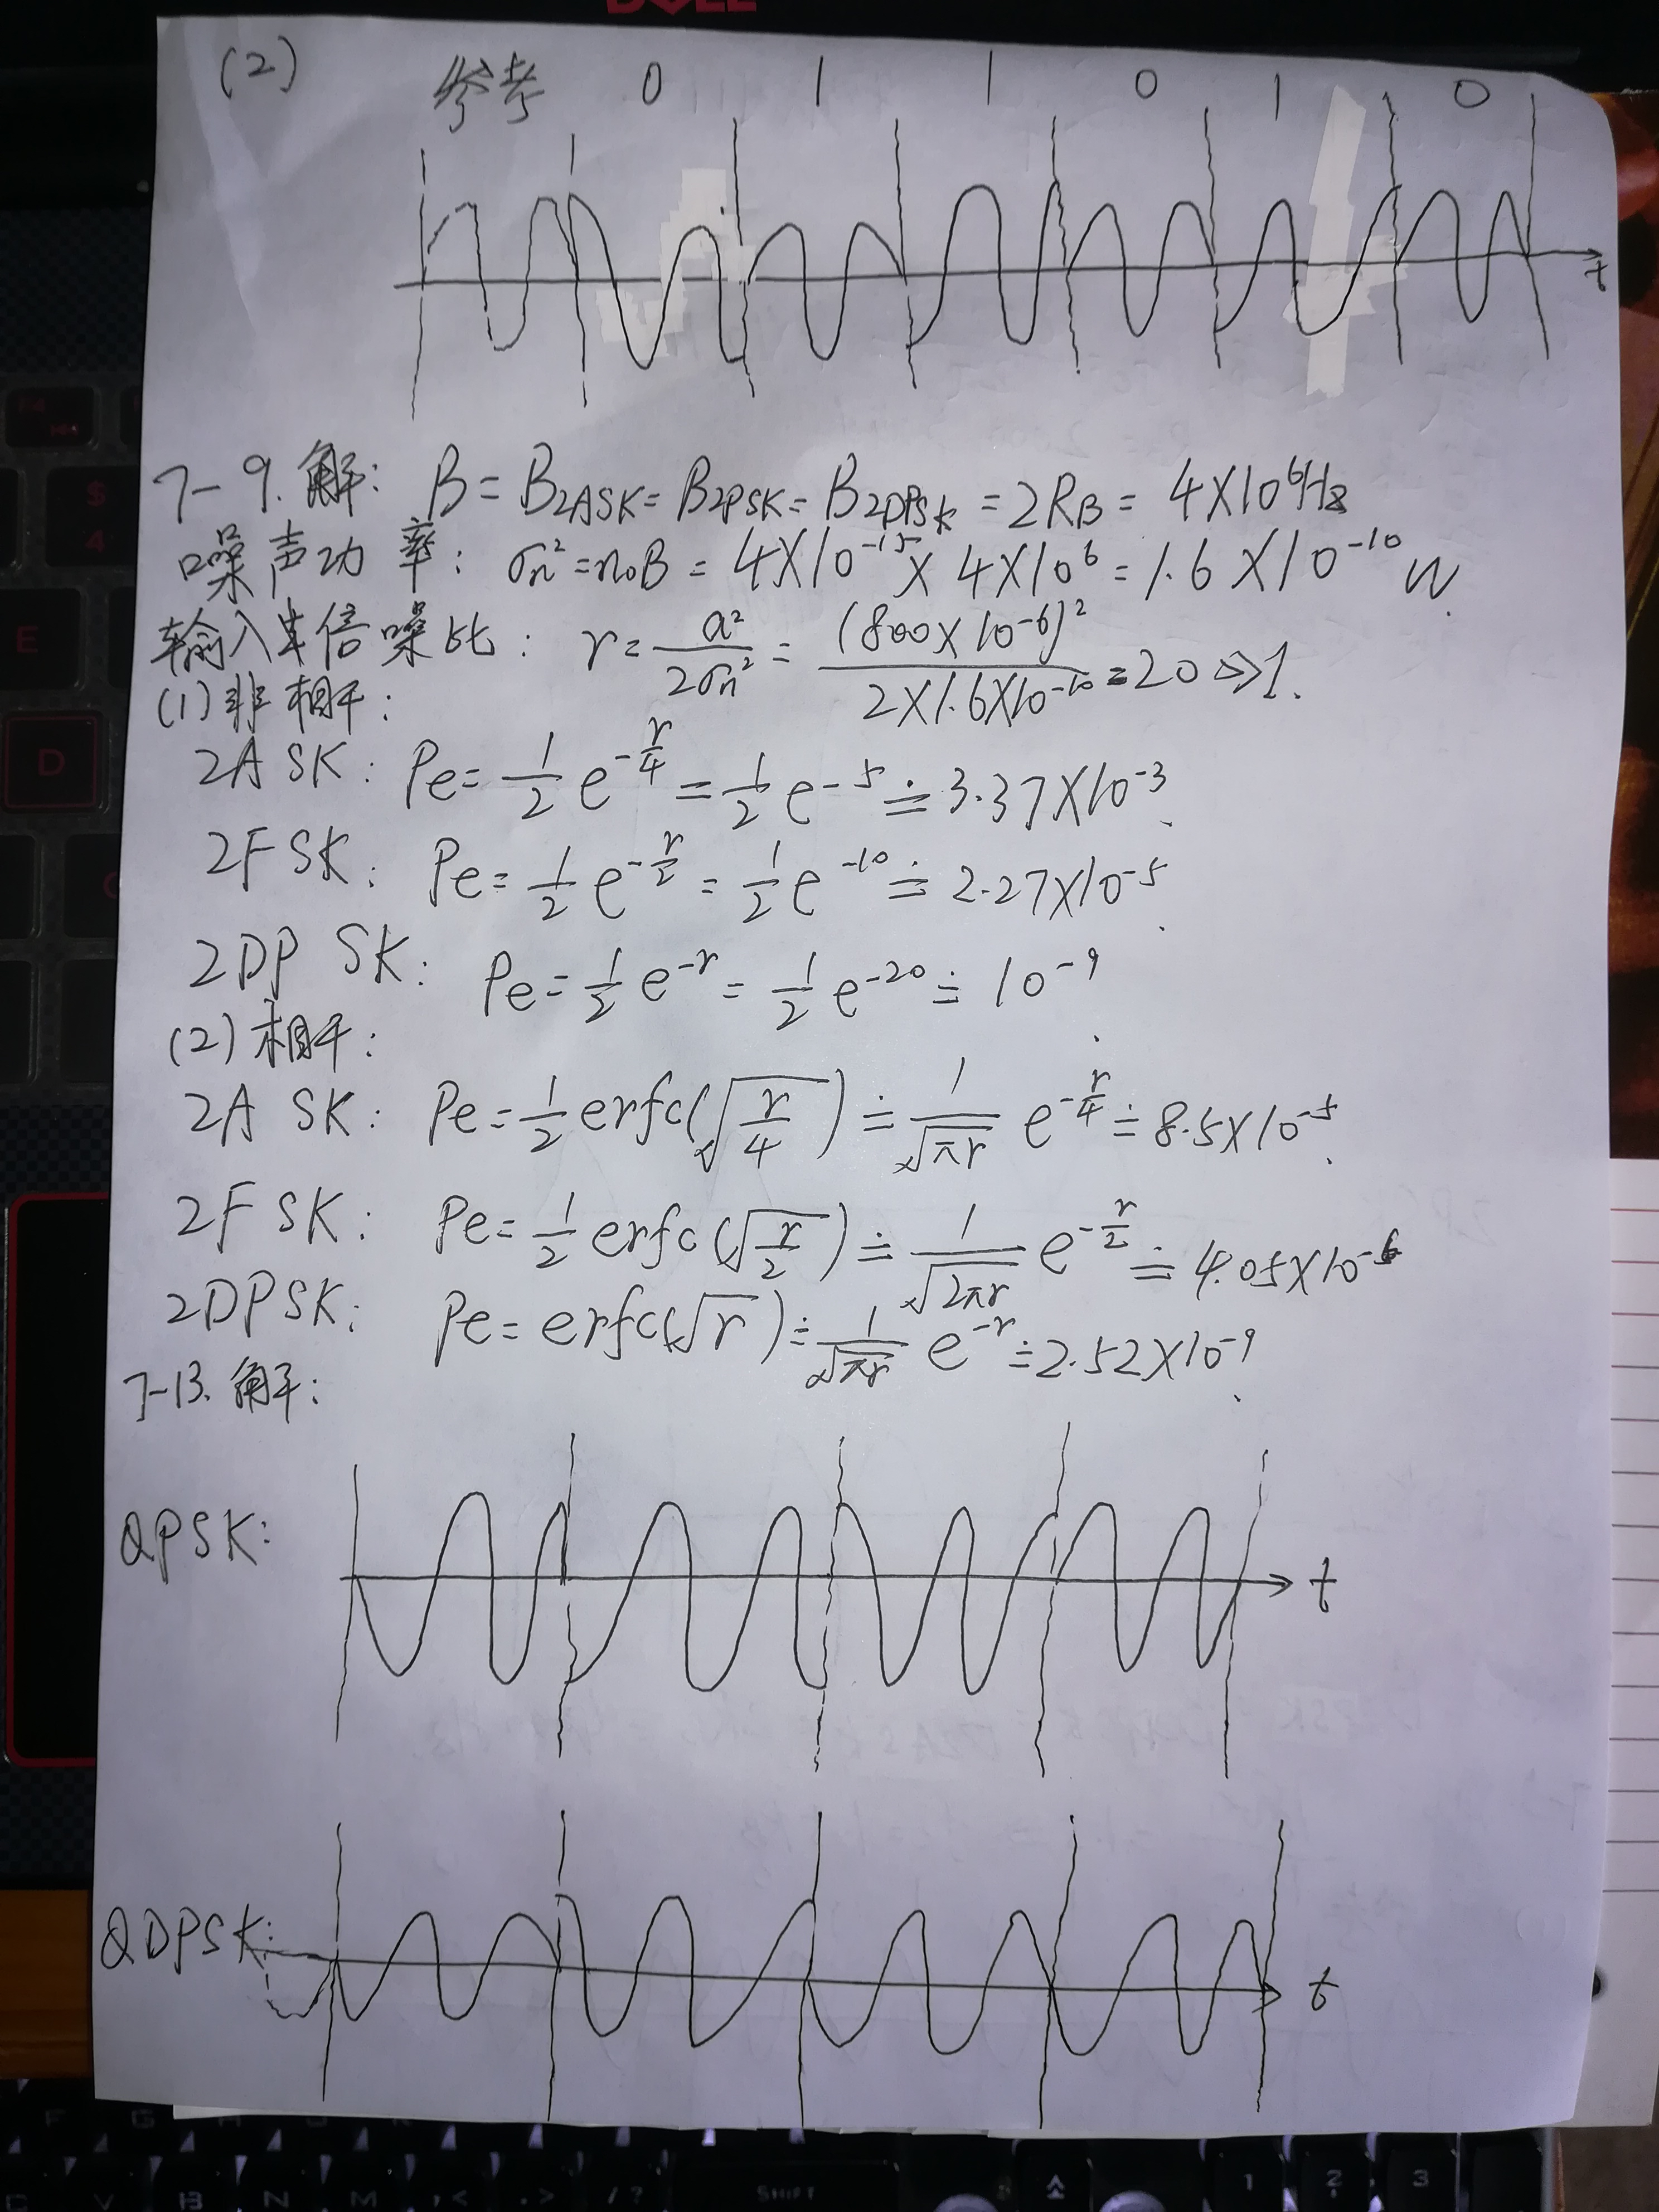 DELL
(2) 参考 0 1 1 0 1 0
t
7-9. 解: B = B2ASK = B2PSK = B2DPSK = 2RB = 4×10⁶Hz
噪声功率: σn² = n₀B = 4×10⁻¹⁵ × 4×10⁶ = 1.6×10⁻¹⁰ W.
输入信噪比: r = a²/2σn² = (800×10⁻⁶)²/2×1.6×10⁻¹⁰ = 20 >> 1.
(1) 非相干:
2ASK: Pe = 1/2 e^(-r/4) = 1/2 e⁻⁵ ≐ 3.37×10⁻³.
2FSK: Pe = 1/2 e^(-r/2) = 1/2 e⁻¹⁰ ≐ 2.27×10⁻⁵.
2DPSK: Pe = 1/2 e^(-r) = 1/2 e⁻²⁰ ≐ 10⁻⁹.
(2) 相干:
2ASK: Pe = 1/2 erfc(√(r/4)) ≐ 1/√(πr) e^(-r/4) ≐ 8.5×10⁻⁵.
2FSK: Pe = 1/2 erfc(√(r/2)) ≐ 1/√(2πr) e^(-r/2) ≐ 4.05×10⁻⁶
2DPSK: Pe = erfc(√r) ≐ 1/√(πr) e^(-r) ≐ 2.52×10⁻⁹.
7-13. 解:
QPSK:
t
QDPSK:
t